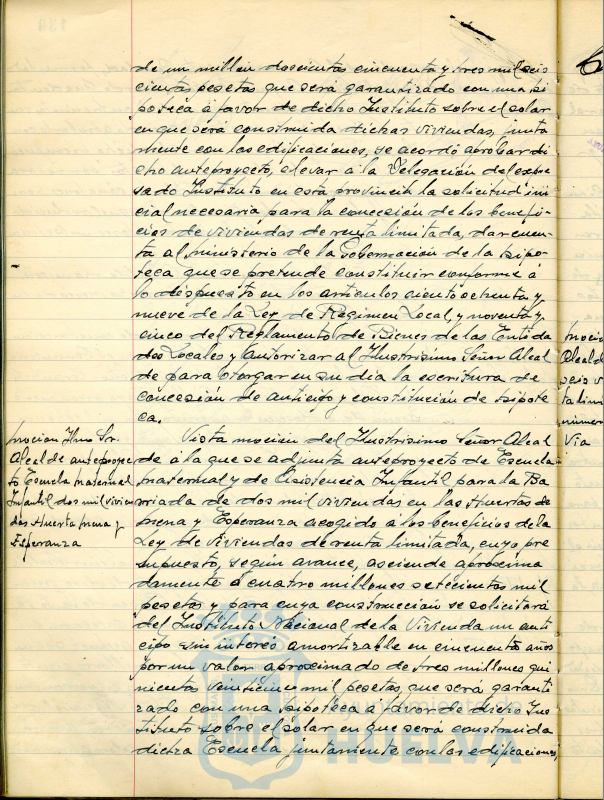 de un millón doscientas cincuenta y tres mil seis
cientas pesetas que será garantizado con una hi
poteca á favor de dicho Instituto sobre el solar
en que será construida dichas viviendas, junta
mente con las edificaciones, se acordó aprobar di
cho anteproyecto, elevar á la Delegación del expre
sado Instituto en esta provincia la solicitud ini
cial necesaria para la concesión de los benefi-
cios de viviendas de renta limitada, dar cuen-
ta al ministerio de la Gobernación de la hipo-
teca que se pretende constituir conforme á
lo dispuesto en los articulos ciento ochenta y
nueve de la Ley de Regimen Local, y noventa y
cinco del Reglamento de Bienes de las Entida
des Locales y autorizar al Ilustrisimo Señor Alcal
de para otorgar en su dia la escritura de
concesión de anticipo y constitución de hipote
ca.
moción Ilmo Sr.
Alcalde anteproyec
to Escuela maternal
Infantil dos mil vivien
das Huerta mena y
Esperanza
Vista moción del Ilustrisimo Señor Alcal
de á la que se adjunta anteproyecto de Escuela
maternal y de Asistencia Infantil para la Ba
rriada de dos mil viviendas en las Huertas de
mena y Esperanza acogido a los beneficios de la
Ley de viviendas de renta limitada, cuyo pre
supuesto, según avance, asciende aproxima
damente á cuatro millones setecientas mil
pesetas y para cuya construcción se solicitará
del Instituto Nacional de la Vivienda un anti
cipo sin interés amortizable en cincuenta años
por un valor aproximado de tres millones qui
nientas veinticinco mil pesetas, que será garanti
zado con una hipoteca á favor de dicho Ins
tituto sobre el solar en que será construida
dicha Escuela juntamente con las edificaciones,
moció
Alcald
seis v
ta limi
numer
Via
HUELVA